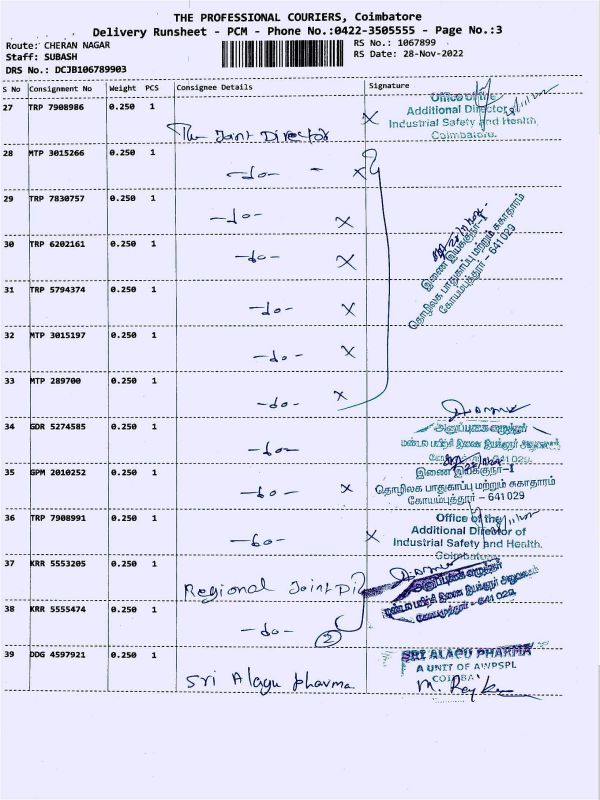 THE PROFESSIONAL COURIERS, Coimbatore
Delivery Runsheet - PCM - Phone No.:0422-3505555 - Page No.:3
Route: CHERAN NAGAR
RS No.: 1067899
Staff: SUBASH
RS Date: 28-Nov-2022
DRS No.: DCJB106789903
S No Consignment No Weight PCS Consignee Details Signature
27 TRP 7908986 0.250 1 The Joint Director X
Office of the
Additional Director
Industrial Safety and Health,
Coimbatore.
28 MTP 3015266 0.250 1 -do- X
29 TRP 7830757 0.250 1 -do- X
இணை இயக்குநர்-I
தொழிலக பாதுகாப்பு மற்றும் சுகாதாரம்
கோயம்புத்தூர் - 641 029
30 TRP 6202161 0.250 1 -do- X
31 TRP 5794374 0.250 1 -do- X
32 MTP 3015197 0.250 1 -do- X
33 MTP 289700 0.250 1 -do- X
34 GDR 5274585 0.250 1 -do-
35 GPM 2010252 0.250 1 -do- X
இணை இயக்குநர்-I
தொழிலக பாதுகாப்பு மற்றும் சுகாதாரம்
கோயம்புத்தூர் - 641 029
36 TRP 7908991 0.250 1 -do- X
Office of the
Additional Director of
Industrial Safety and Health,
Coimbatore
37 KRR 5553205 0.250 1 Regional Joint Di
38 KRR 5555474 0.250 1 -do- 2
39 DDG 4597921 0.250 1 Sri Alagu pharma
SRI ALAGU PHARMA
A UNIT OF AWPSPL